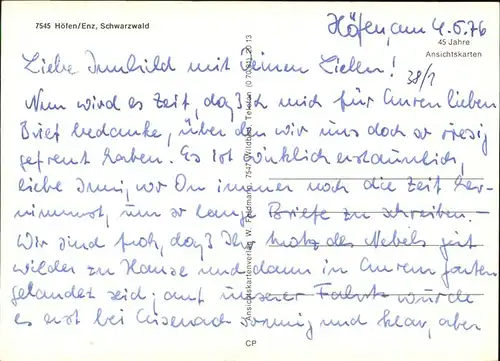 7545 Höfen/Enz, Schwarzwald
Höfen, am 4.6.76
45 Jahre
Ansichtskarten
38/1
Liebe Irmhild mit Deinen Lieben!
Nun wird es Zeit, daß ich mich für Euren lieben
Brief bedanke, über den wir uns doch so riesig
gefreut haben. Es ist wirklich erstaunlich,
liebe Irmi, wo Du immer noch die Zeit her-
nimmst, um so lange Briefe zu schreiben. –
Wir sind froh, daß Ihr trotz des Nebels gut
wieder zu Hause und dann in Eurem
gelandet seid; auf unserer Fahrt wurde
es erst bei Eisenach sonnig und klar, aber
Ansichtskartenverlag W. Feldmann, 7547 Wildbad, Telefon
CP